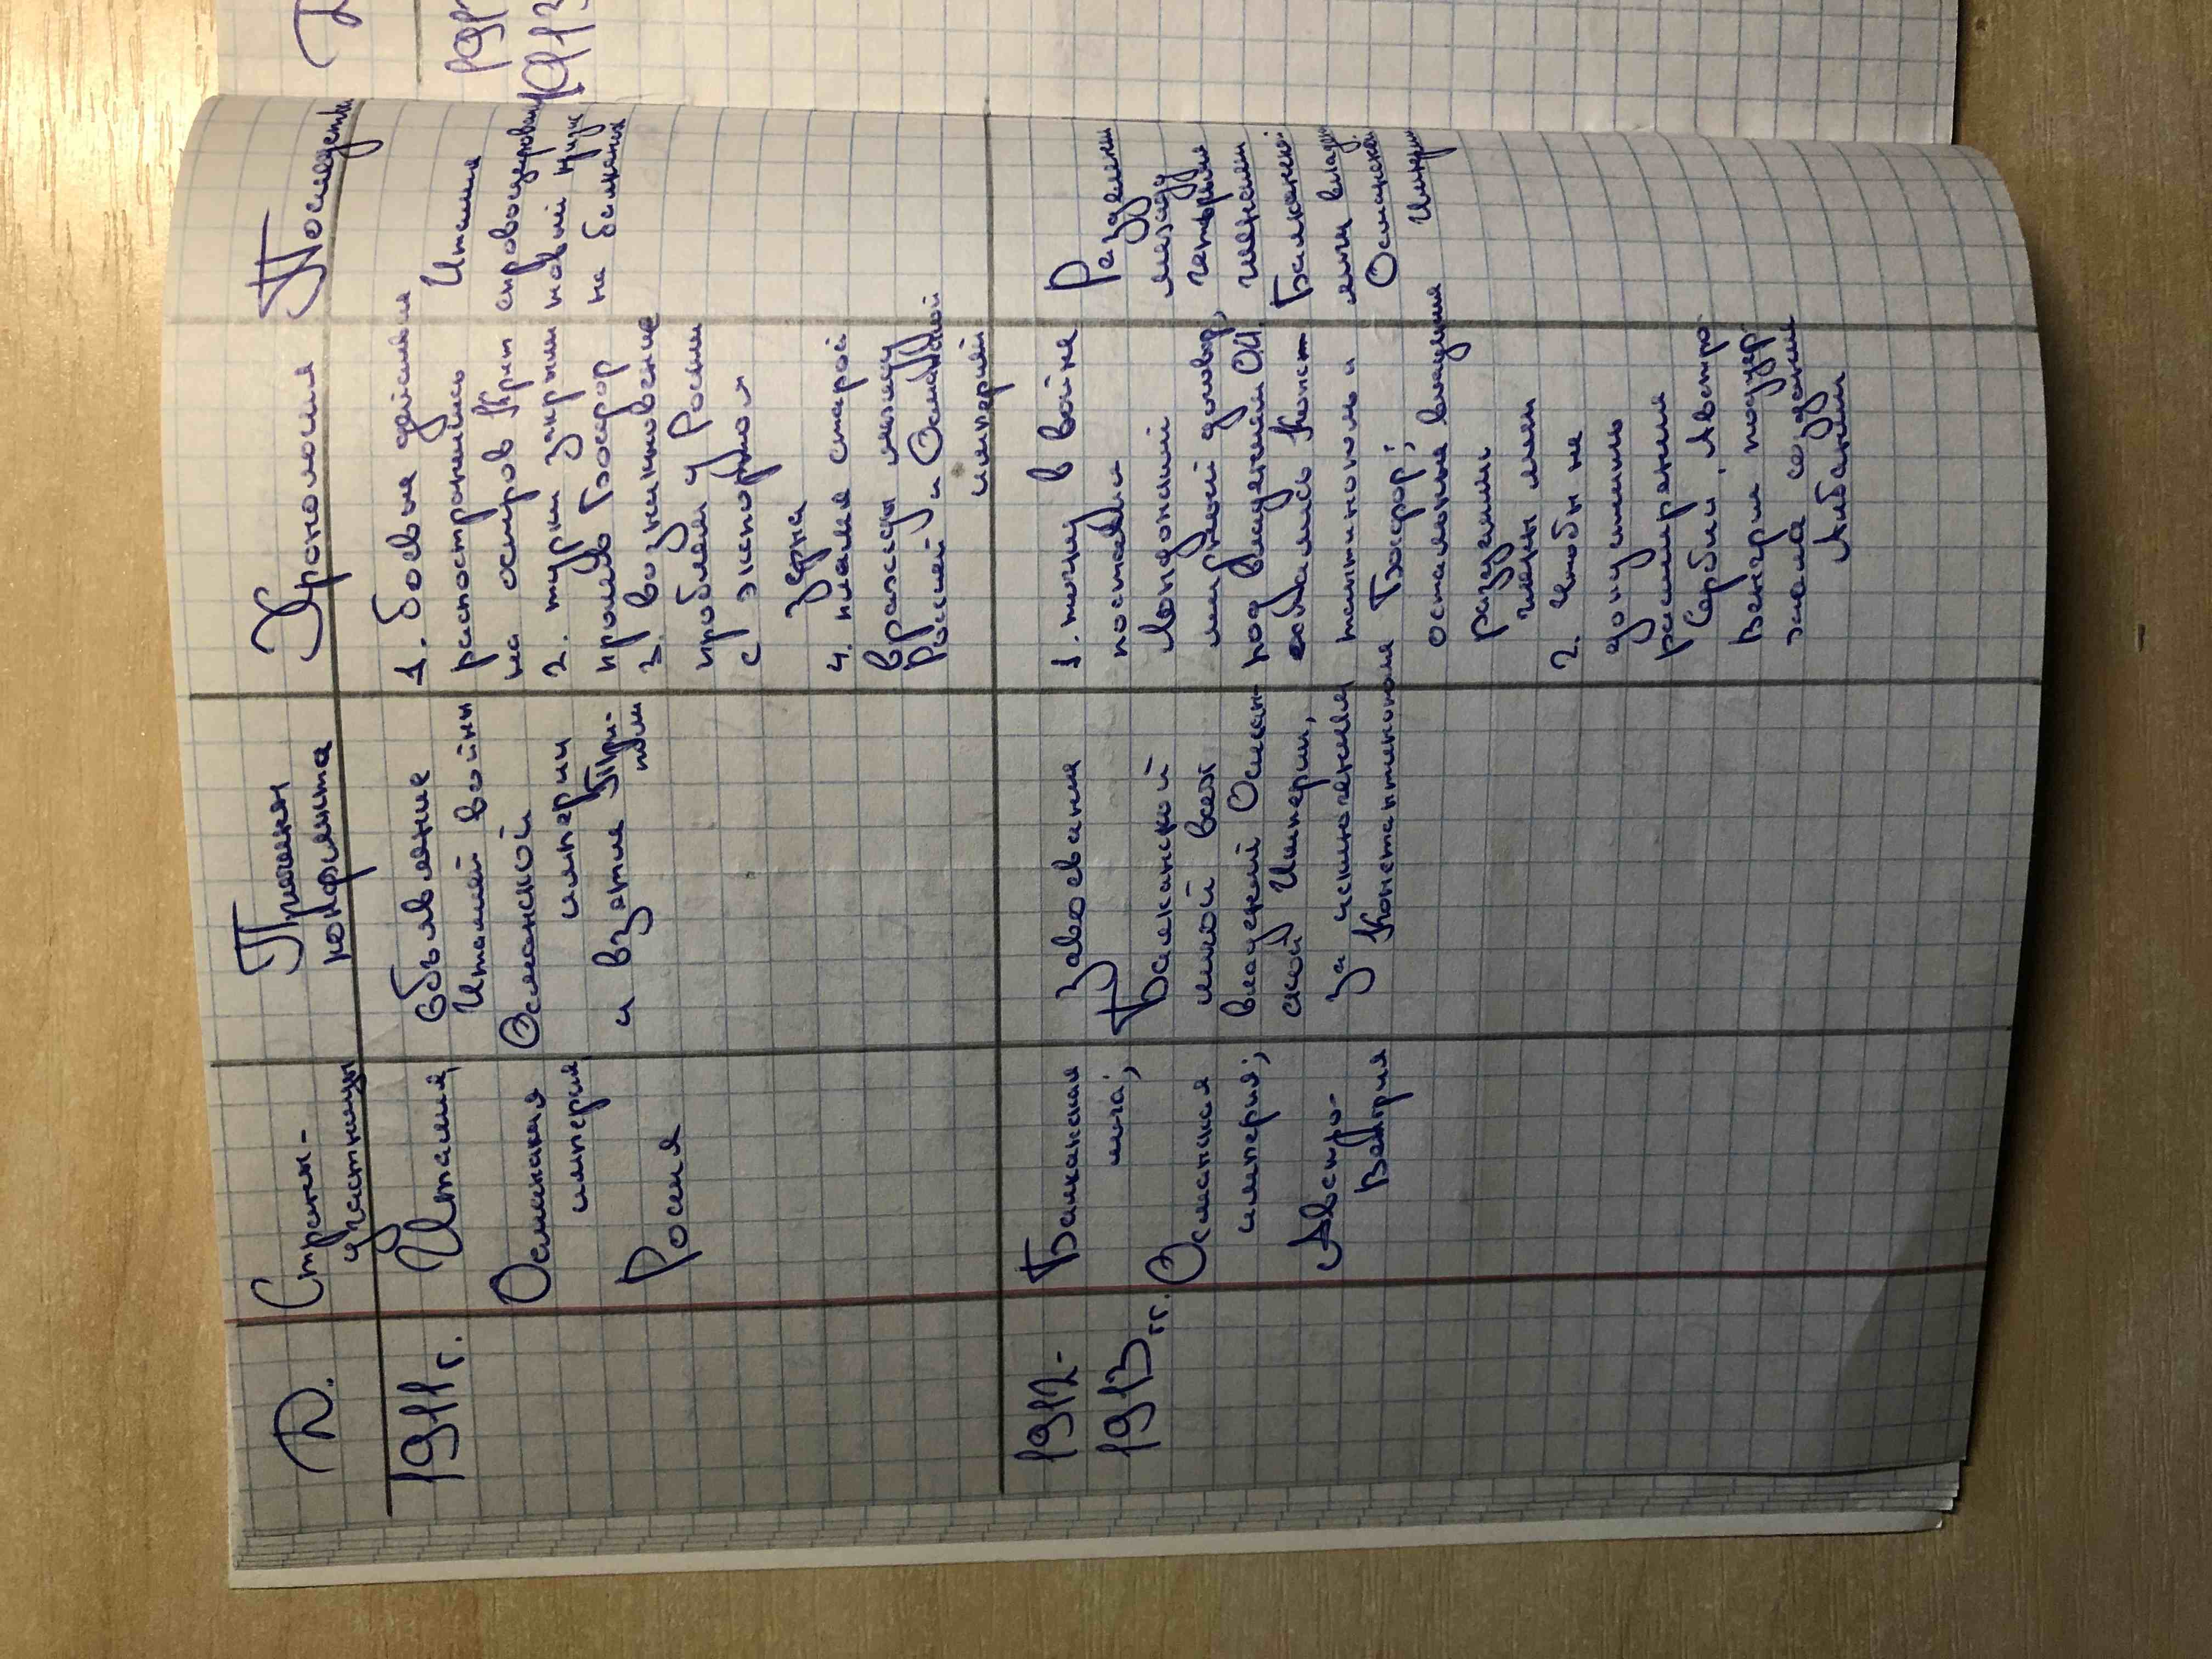 Д.
Страны-
участницы
Причины
конфликта
Хронология
Последстви
1911г.
Италия,
Османская
империя,
Росия
объявление
Италией войны
Османской
империи
и взятие Три-
поли
1. боевые действия
распостронились
на остров Крит
2. турки закрыли
пролив Босфор
3. возникновение
проблем у Росии
с экспортом
зерна
4. начало старой
вражды между
Россией и Османской
империей
Италия
спровоцировал
новый кризис
на балканах
1912-
1913 гг.
Балканская
лига;
Османская
империя;
Австро-
Венгрия
Завоевания
Балканской
лигой всех
владений Осман-
ской Империи,
за исключением
Константинополя
1. точку в войне
поставил
Лондонский
мирный договор,
под владением О.И.
остались Конст
тантинополь и
Босфор;
остальные владения
разделили
члены лиги
2. Чтобы не
допустить
расширения
Сербии, Австро-
Венгрия подер-
жала создание
Албании
Разделени
между
четырьмя
членами
Балканской
лиги влад
Османской
Импери
Д
191
1913